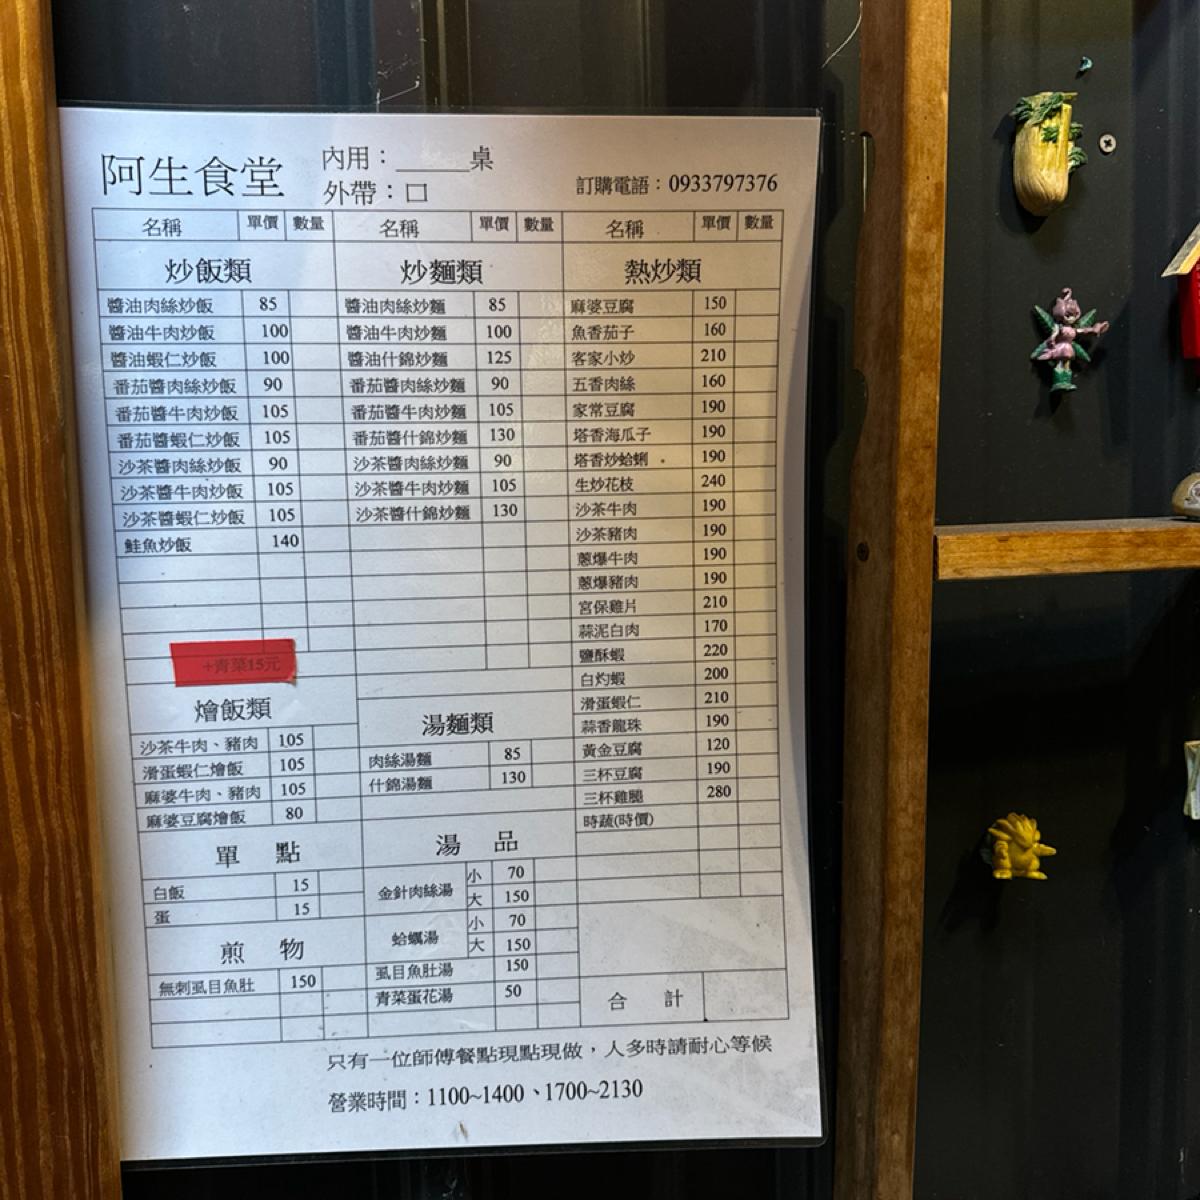 阿生食堂
內用：_____桌
外帶：□
訂購電語：0933797376
名稱 單價 數量 名稱 單價 數量 名稱 單價 數量
炒飯類
醬油肉絲炒飯 85
醬油牛肉炒飯 100
醬油蝦仁炒飯 100
番茄醬肉絲炒飯 90
番茄醬牛肉炒飯 105
番茄醬蝦仁炒飯 105
沙茶醬肉絲炒飯 90
沙茶醬牛肉炒飯 105
沙茶醬蝦仁炒飯 105
鮭魚炒飯 140
+青菜15元
燴飯類
沙茶牛肉、豬肉 105
滑蛋蝦仁燴飯 105
麻婆牛肉、豬肉 105
麻婆豆腐燴飯 80
單 點
白飯 15
蛋 15
煎 物
無刺虱目魚肚 150
炒麵類
醬油肉絲炒麵 85
醬油牛肉炒麵 100
醬油什錦炒麵 125
番茄醬肉絲炒麵 90
番茄醬牛肉炒麵 105
番茄醬什錦炒麵 130
沙茶醬肉絲炒麵 90
沙茶醬牛肉炒麵 105
沙茶醬什錦炒麵 130
湯麵類
肉絲湯麵 85
什錦湯麵 130
湯 品
金針肉絲湯 小 70
大 150
蛤蠣湯 小 70
大 150
虱目魚肚湯 150
青菜蛋花湯 50
熱炒類
麻婆豆腐 150
魚香茄子 160
客家小炒 210
五香肉絲 160
家常豆腐 190
塔香海瓜子 190
塔香炒蛤蜊 190
生炒花枝 240
沙茶牛肉 190
沙茶豬肉 190
蔥爆牛肉 190
蔥爆豬肉 190
宮保雞片 210
蒜泥白肉 170
鹽酥蝦 220
白灼蝦 200
滑蛋蝦仁 210
蒜香龍珠 190
黃金豆腐 120
三杯豆腐 190
三杯雞腿 280
時蔬(時價)
合 計
只有一位師傅餐點現點現做，人多時請耐心等候
營業時間：1100~1400、1700~2130